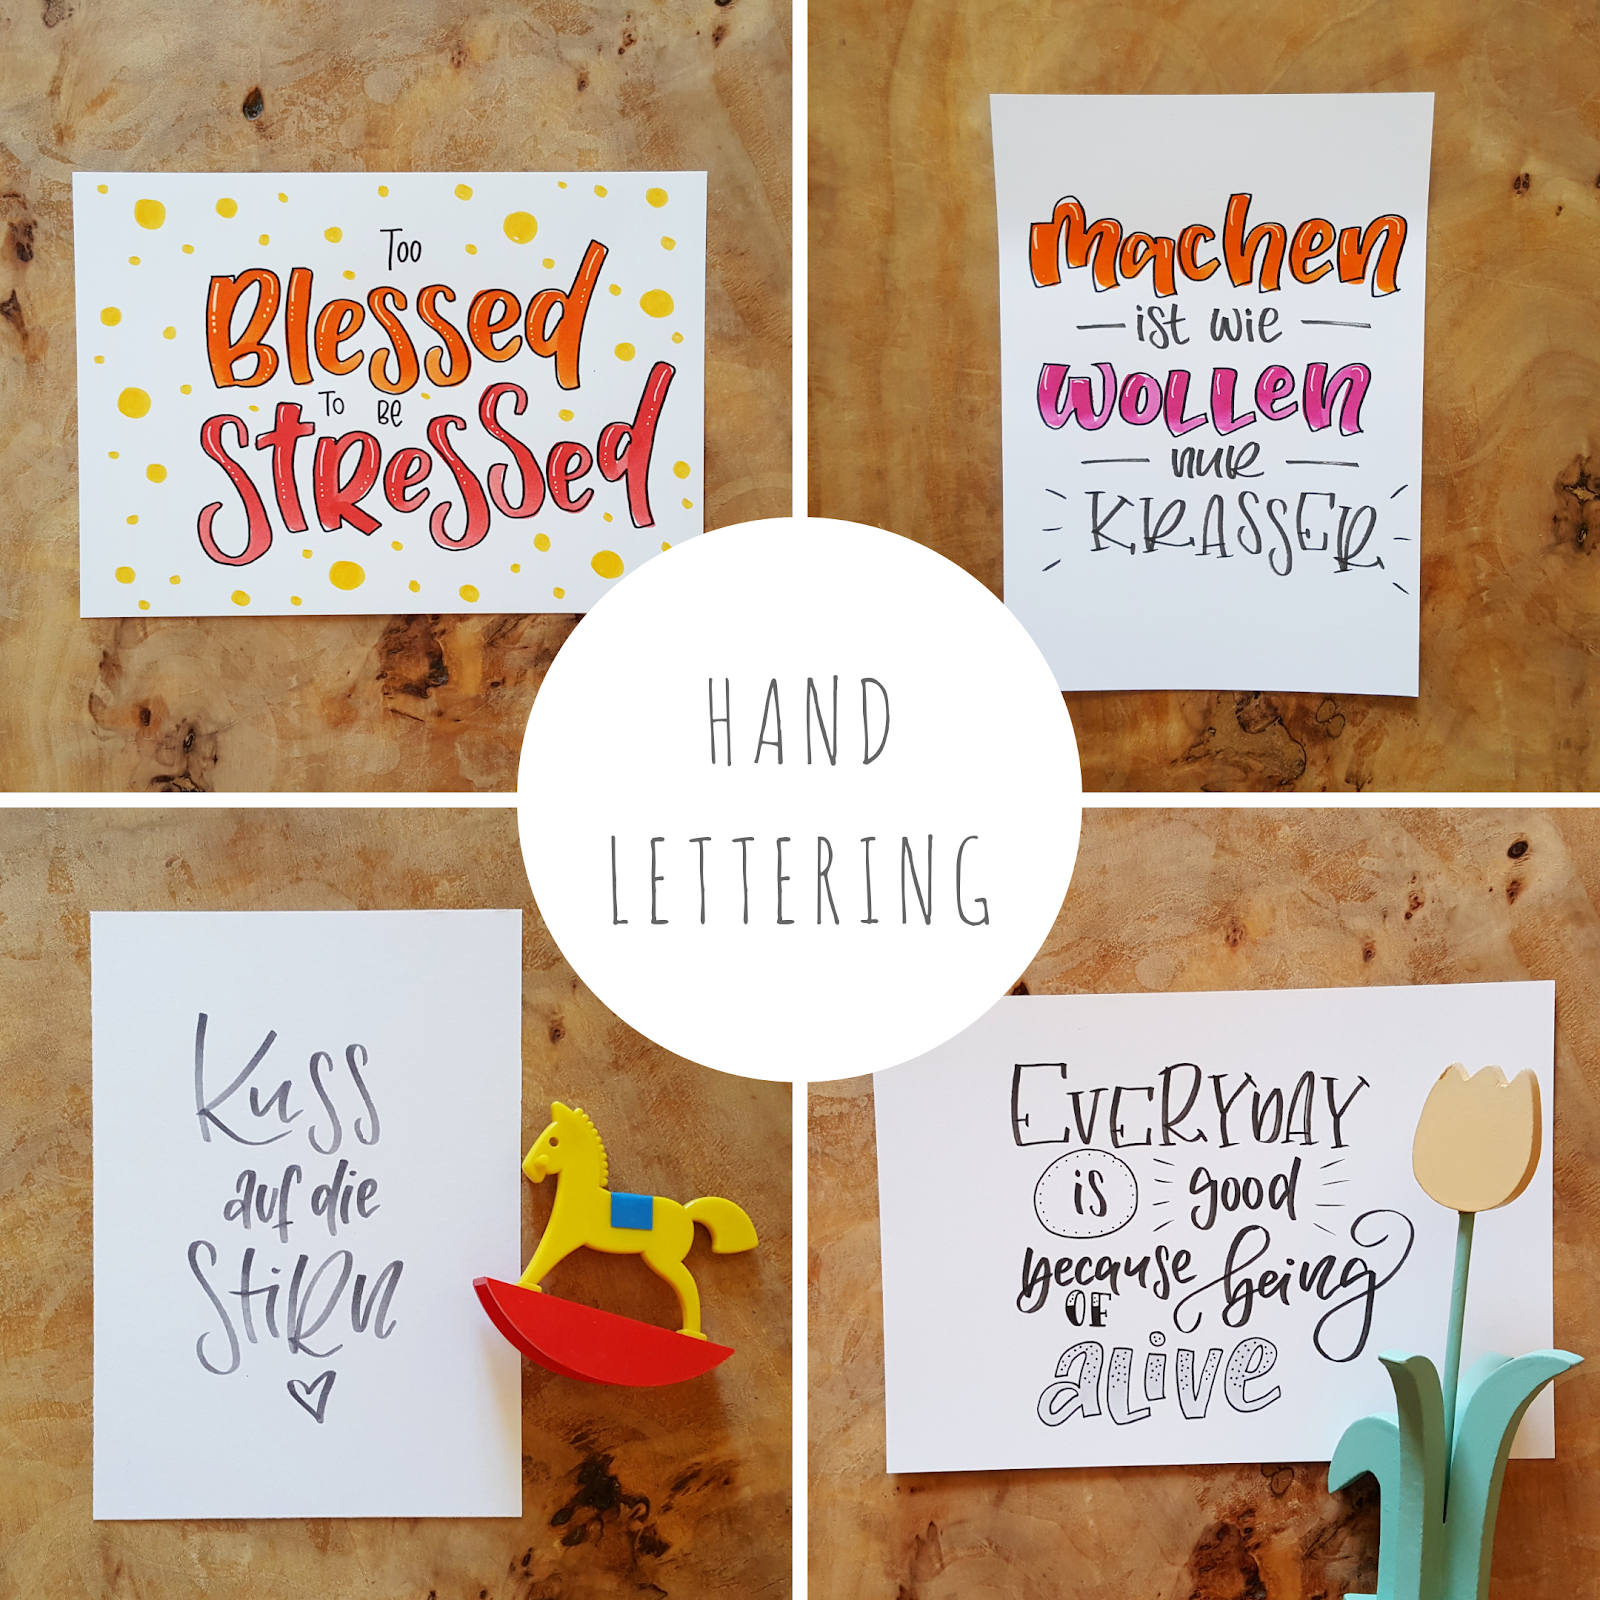 Too
Blessed
To Be
Stressed
Machen
ist wie
WOLLen
nur
KRASSER
HAND
LETTERING
Kuss
auf die
StiRn
EVERYDAY
is good
because being
OF
aLive